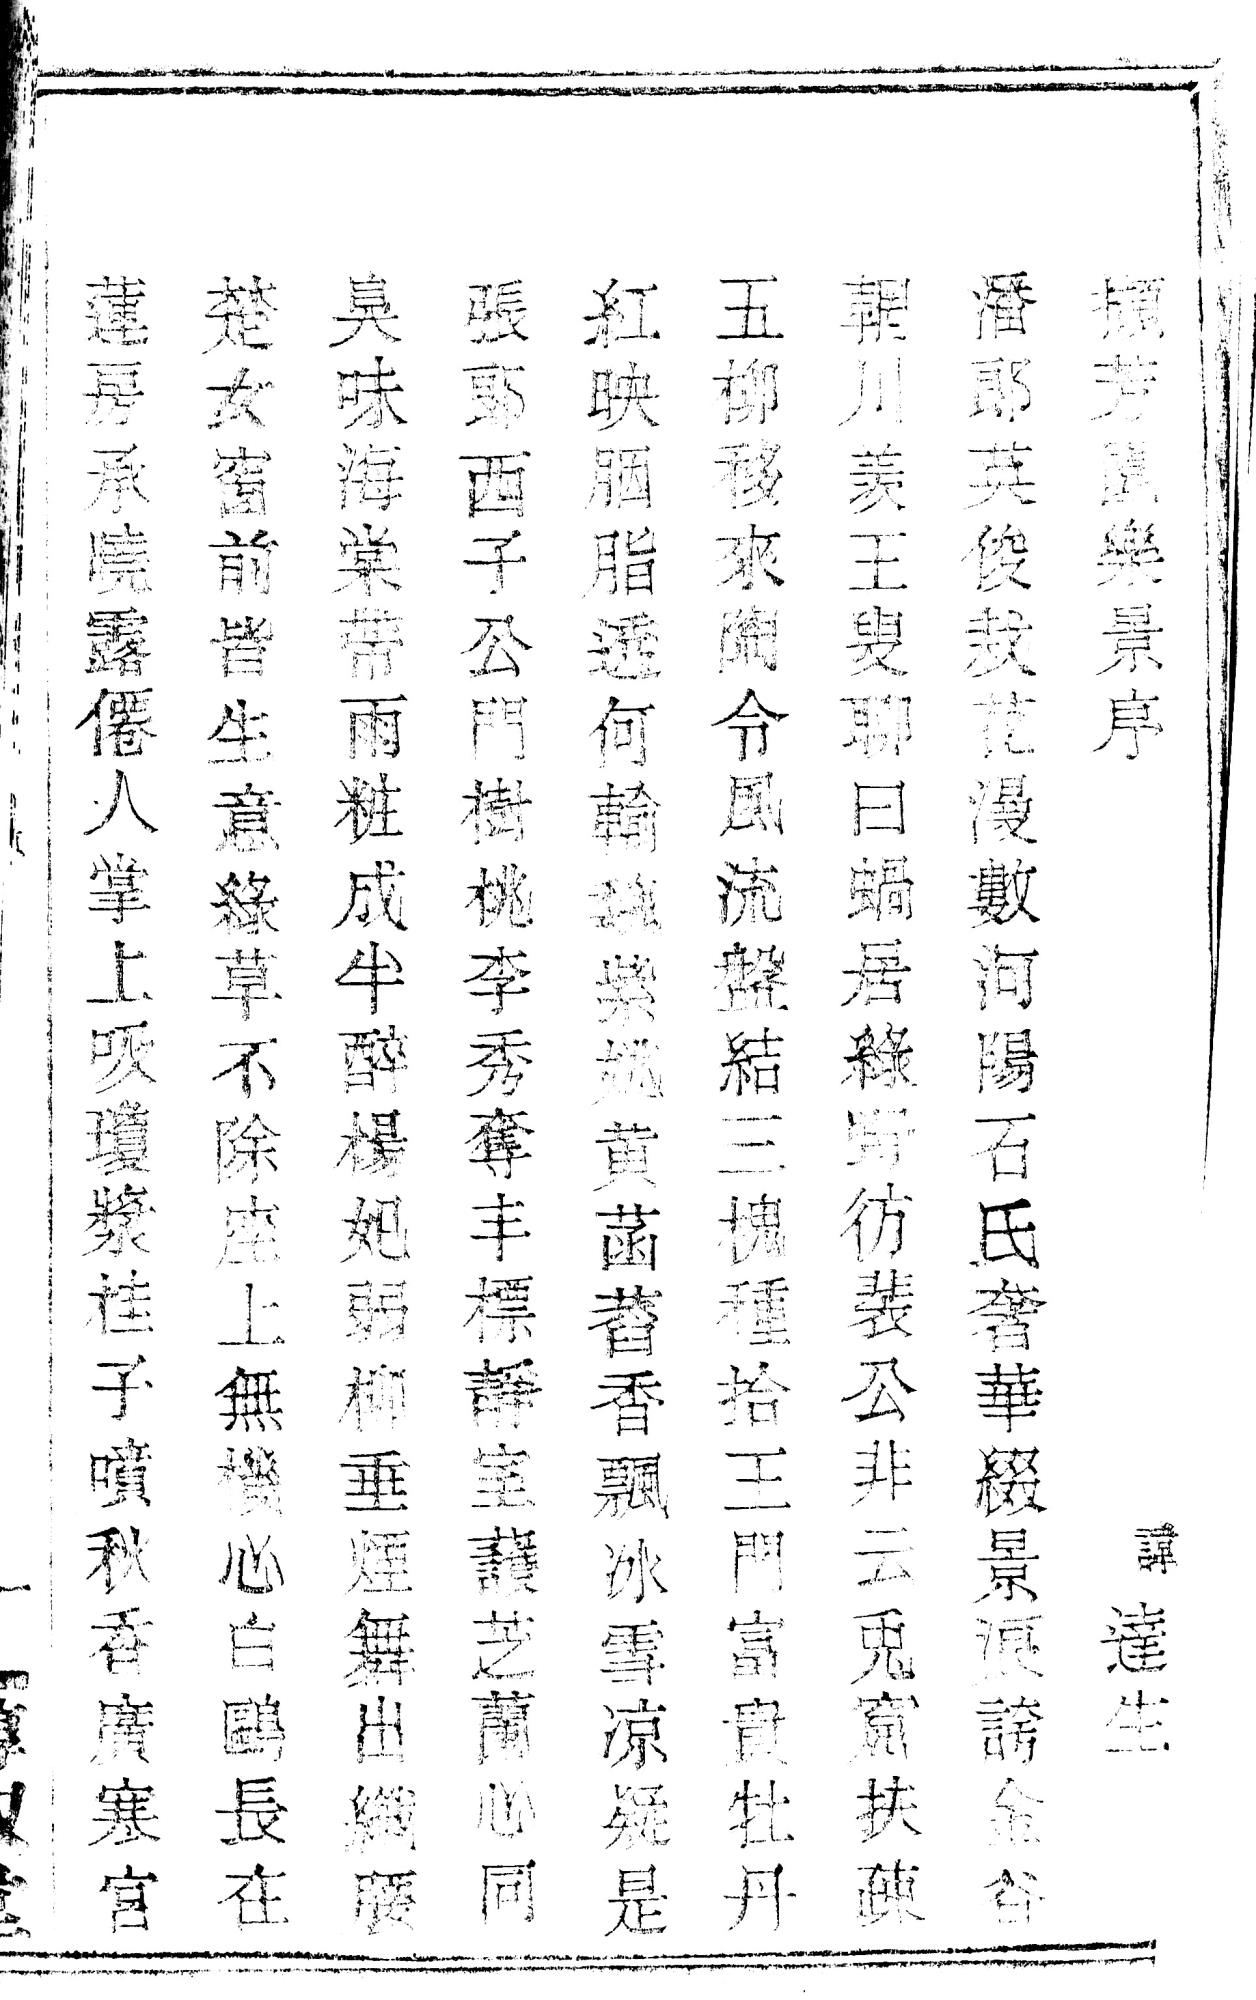 擷芳園樂景序
諱達生
潘郎英俊栽花漫數河陽石氏奢華綴景浪誇金谷
輞川羨王叟聊曰蝸居綠野彷裴公非云兎窟扶疎
五柳移來陶令風流盤結三槐種拾王門富貴牡丹
紅映胭脂透何輸魏紫姚黃菡萏香飄冰雪凉疑是
張郎西子公門樹桃李秀奪丰標靜室護芝蘭心同
臭味海棠帶雨粧成半醉楊妃弱柳垂煙舞出纖腰
楚女窗前皆生意綠草不除座上無機心白鷗長在
蓮房承曉露僊人掌上吸瓊漿桂子噴秋香廣寒宮
一